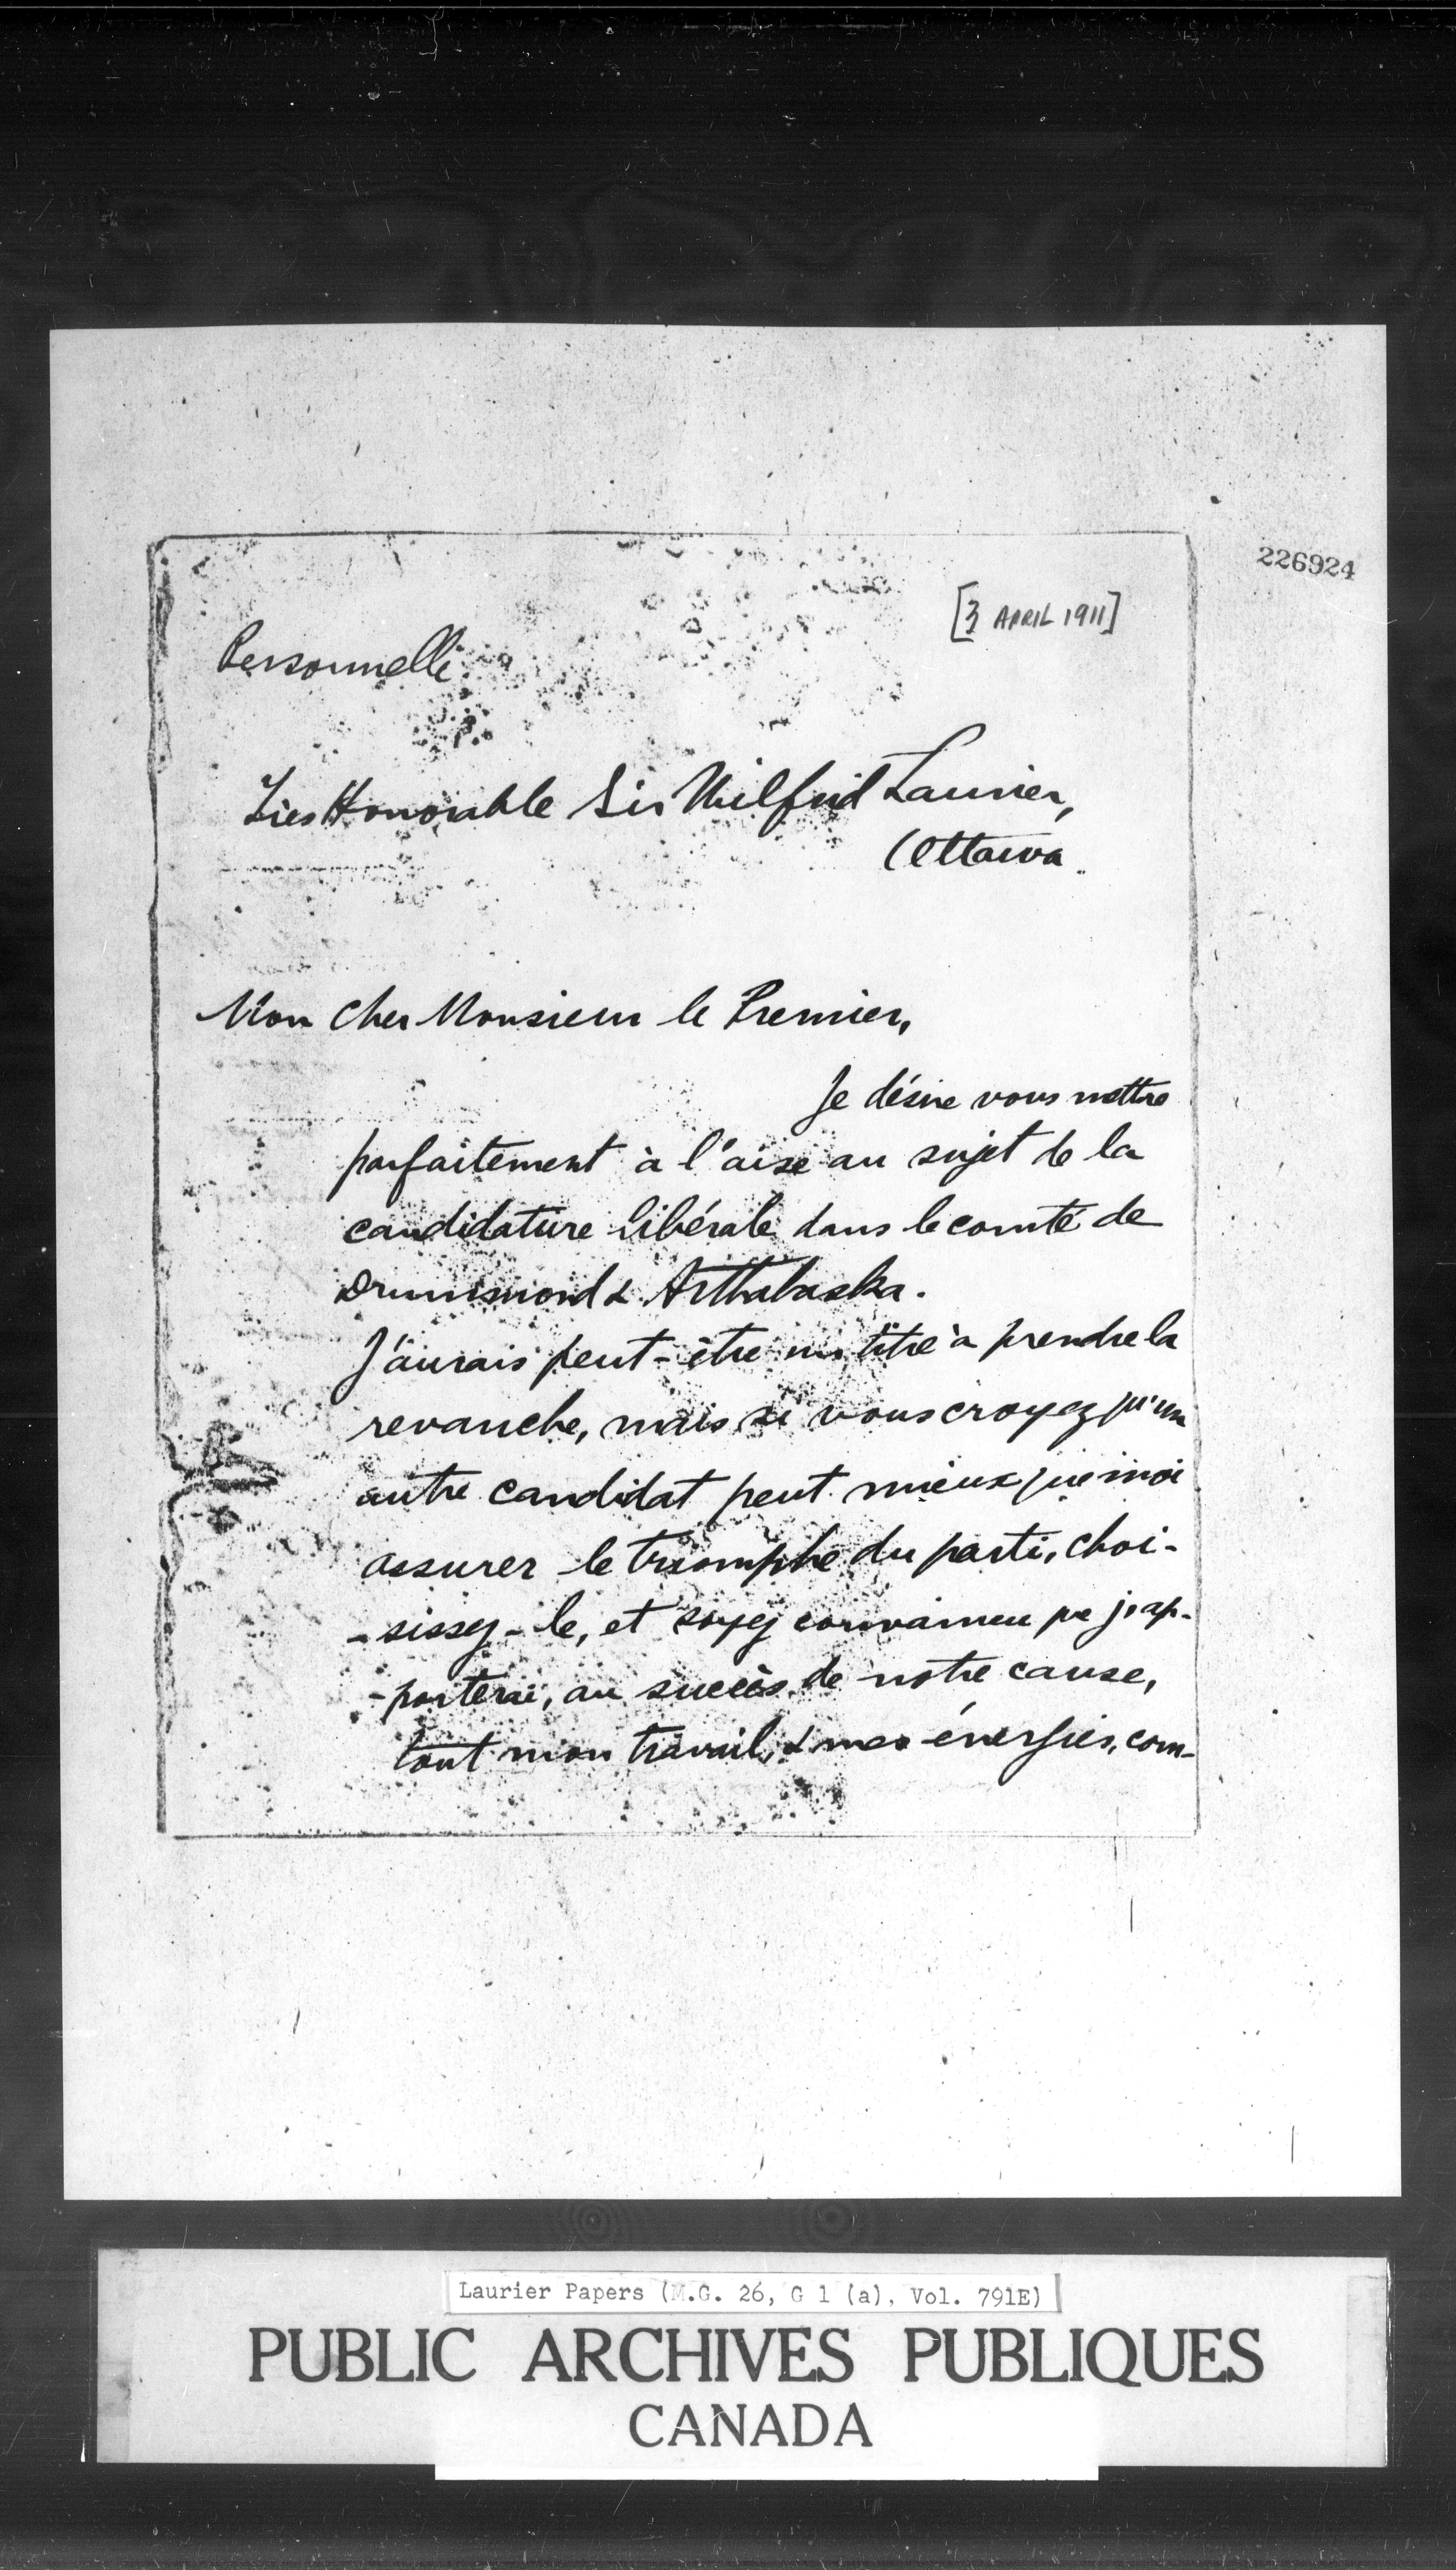 226924
[3 APRIL 1911]
Personnelle
Très Honorable Sir Wilfrid Laurier,
Ottawa
Mon cher Monsieur le Premier,
Je désire vous mettre
parfaitement à l'aise au sujet de la
candidature libérale dans le comté de
Drummond & Arthabaska.
J'aurais peut-être un titre à prendre la
revanche, mais si vous croyez qu'un
autre candidat peut mieux que moi
assurer le triomphe du parti, choi-
-sissez-le, et soyez convaincu que j'ap-
-porterai, au succès de notre cause,
tout mon travail, & mes énergies, com-
Laurier Papers (M.G. 26, G 1 (a), Vol. 791E)
PUBLIC ARCHIVES PUBLIQUES
CANADA